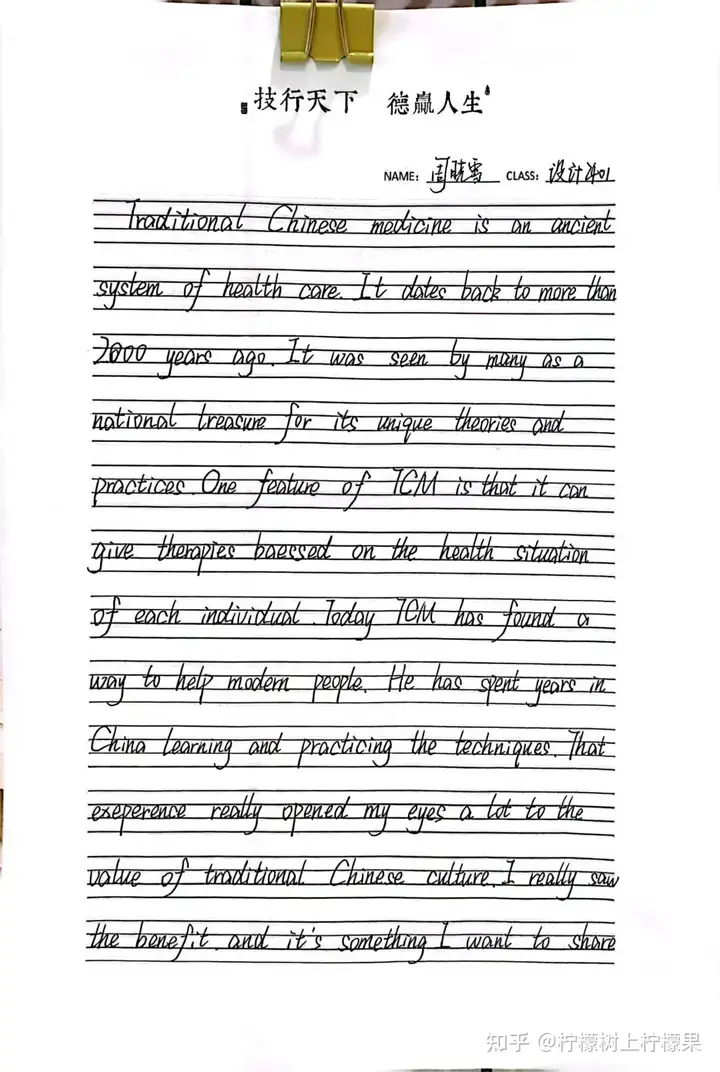 技行天下 德赢人生
NAME: 周晓雪 CLASS: 设计2401
Traditional Chinese medicine is an ancient
system of health care. It dates back to more than
2000 years ago. It was seen by many as a
national treasure for its unique theories and
practices. One feature of TCM is that it can
give therapies baessed on the health situation
of each individual. Today TCM has found a
way to help modern people. He has spent years in
China learning and practicing the techniques. That
exeperence really opened my eyes a lot to the
value of traditional Chinese culture. I really saw
the benefit. and it's something I want to share
知乎 @柠檬树上柠檬果